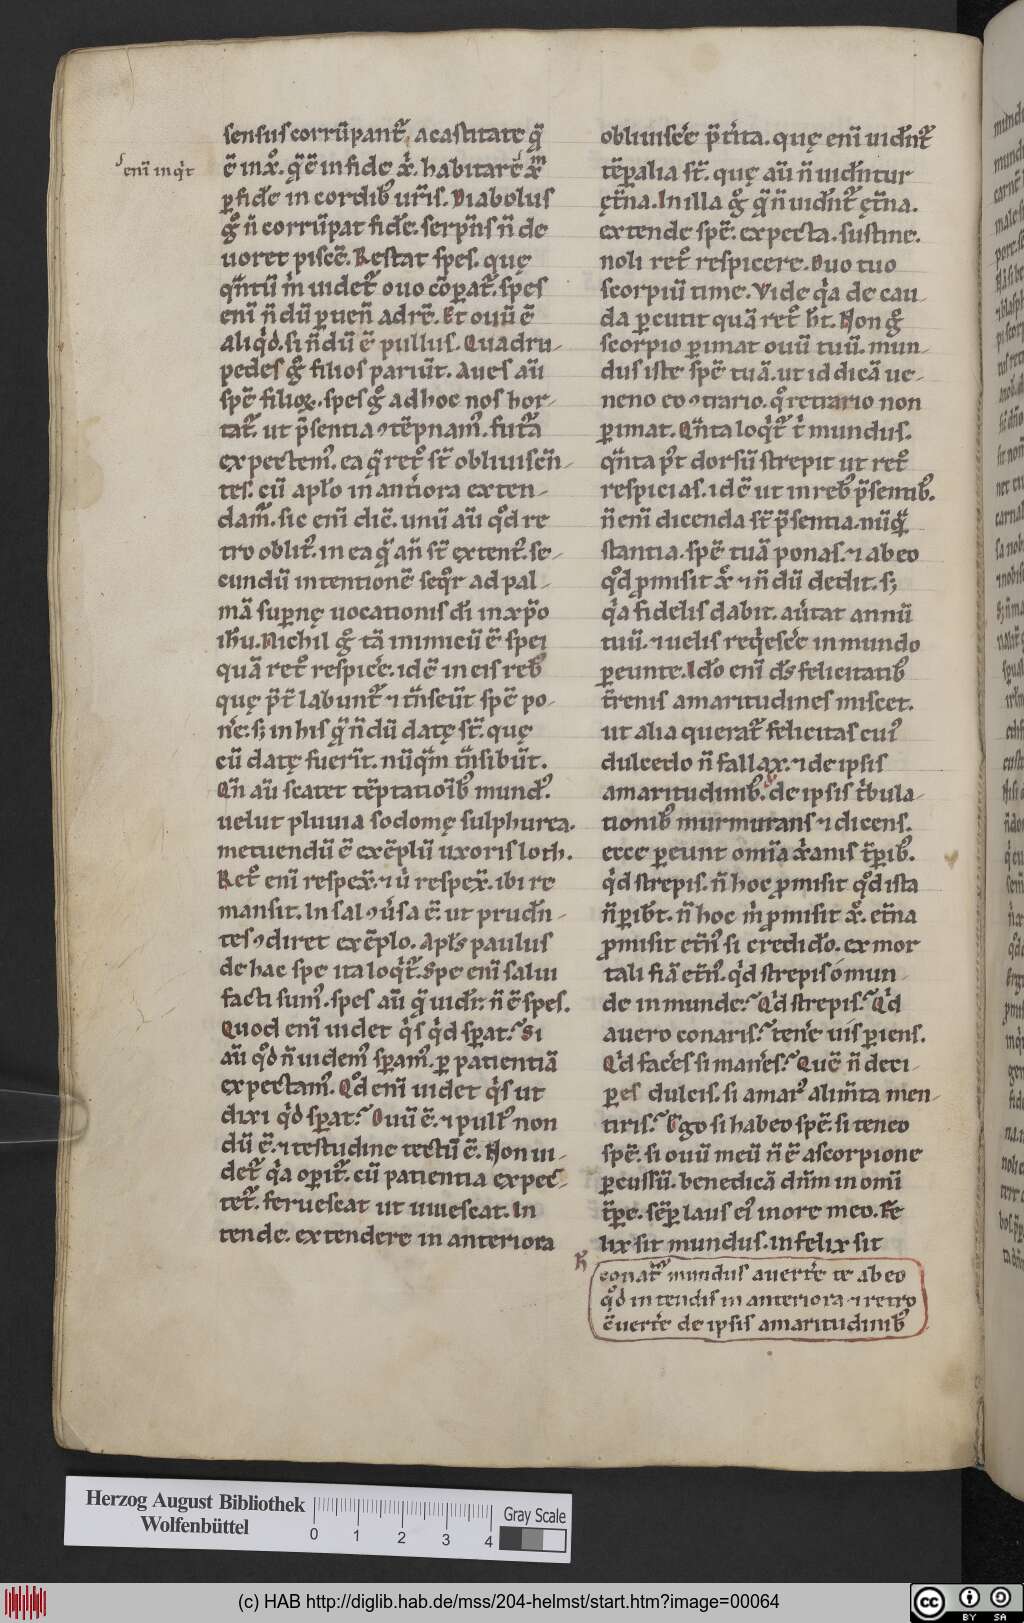 sensus corrūpant᷑ a castitate q̄
ē in xº. q̄ ē in fide xi. habitare xm
enī inqt
ꝑ fidē in cordib; urīs. Diabolus
gº n̄ corrūpat fidē. serpn̄s n̄ de
uoret piscē. Restat spes. quę
qn̄tū m uidet᷑ ouo cōparat᷑. spes
enī n̄ dū ꝑuen̄ ad rē. Et ouū ē
aliqd. si n̄dū ē pullus. Quadru-
pedes gº filios pariūt. Aues aū
spē filioꝝ. spes gº ad hoc nos hor-
tat᷑. ut p̄sentia ꝯtēpnam᷒. futᷓa
expectem᷒. ea q̄ retº st̄ obliuiscēn-
tes. cū aplo in anteriora exten-
dam᷒. sic enī dic̄. unū aū qd re
tro oblit᷒. in ea q̄ an̄ st̄ extent᷒. se-
cundū intentionē seqr ad pal-
mā suꝑnę uocationis di in xp̄o
ihu. Nichil gº tā inimicū ē spei
quā retº respicē. idē in eis reb;
quę p̄t̄ labunt᷑ ⁊ tn̄seūt spē po-
ne. sꝫ in his q̄ n̄dū datę st̄. quę
cū datę fuerīt. nūqm tn̄sibūt.
Qn̄ aū scatet tēptatioīb; mund᷒.
uelut pluuia sodomę sulphurea.
metuendū ē exēplū uxoris loth.
Retº enī respex̄. ⁊ u respex̄. ibi re
mansit. In sal ꝯuersa ē. ut prudn-
tes ꝯdiret exēplo. Apls paulus
de hac spe ita loqt᷑. Spe enī salui
facti sum᷒. spes aū q̄ uidr. n̄ ē spes.
Quod enī uidet qs qd sꝑat? Si
aū qd n̄ uidem᷒ sꝑam᷒. ꝑ patientiā
expectam᷒. Qd enī uidet qs ut
dixi qd sꝑat? Ouū ē. ⁊ pull᷒ non
dū ē. ⁊ testudine tectū ē. Non ui-
det᷑ qa oꝑit᷑. cū patientia expec-
tet᷑. feruescat ut uiuescat. In
tende. extendere in anteriora
obliuiscē p̄tita. quę enī uidnt᷑
tēꝑalia st̄. quę aū n̄ uidntur
ętn̄a. In illa gº q̄ n̄ uidnt᷑ ętn̄a.
extende spē. expecta. sustine.
noli retº respicere. Ouo tuo
scorpiū time. Vide qa de cau-
da ꝑcutit quā retº ht. Non gº
scorpio ꝑimat ouū tuū. mun-
dus iste spē tuā. ut id dicā ue-
neno ꝯtrario. qº retrario non
ꝑimat. Qn̄ta loqt᷑ t mundus.
qn̄ta pt dorsū strepit ut retº
respicias. idē ut in reb; p̄sentib;.
n̄ enī dicenda st̄ p̄sentia. nūq̄
stantia. spē tuā ponas. ⁊ ab eo
qd ꝓmisit xº ⁊ n̄ dū dedit. sꝫ
qa fidelis dabit. autat annū
tuū. ⁊ uelis reqescē in mundo
ꝑeunte. Ido enī ds felicitatib;
tr̄enis amaritudines miscet.
ut alia querat᷑ felicitas cui᷒
dulcedo n̄ fallax. ⁊ de ipsis
amaritudinib;. de ipsis tbula-
tionib; murmurans ⁊ dicens.
ecce ꝑeunt omīa xanis tꝑib;.
qd strepis. n̄ hoc ꝓmisit qd ista
n̄ ꝑibt. n̄ hoc m ꝓmisit xº. etn̄a
ꝓmisit etn̄᷒ si credido. ex mor
tali fiā etn̄᷒. qd strepis o mun-
de inmunde? Qd strepis? Qd
auero conaris? tenē uis ꝑiens.
Qd faces si manes? Quē n̄ deci-
ꝑes dulcis. si amar᷒ alim̄ta men-
tiris? Ego si habeo spē. si teneo
spē. si ouū meū n̄ ē a scorpione
ꝑcussū. benedicā dn̄m in omī
tꝑe. sēꝑ laus ei᷒ in ore meo. Fe
lix sit mundus. infelix sit
conat᷑ mundus auertē te ab eo
qd intendis in anteriora ⁊ retro
euertē de ipsis amaritudinib;
Herzog August Bibliothek
Wolfenbüttel
0 1 2 3 4
Gray Scale
(c) HAB http://diglib.hab.de/mss/204-helmst/start.htm?image=00064
cc BY SA